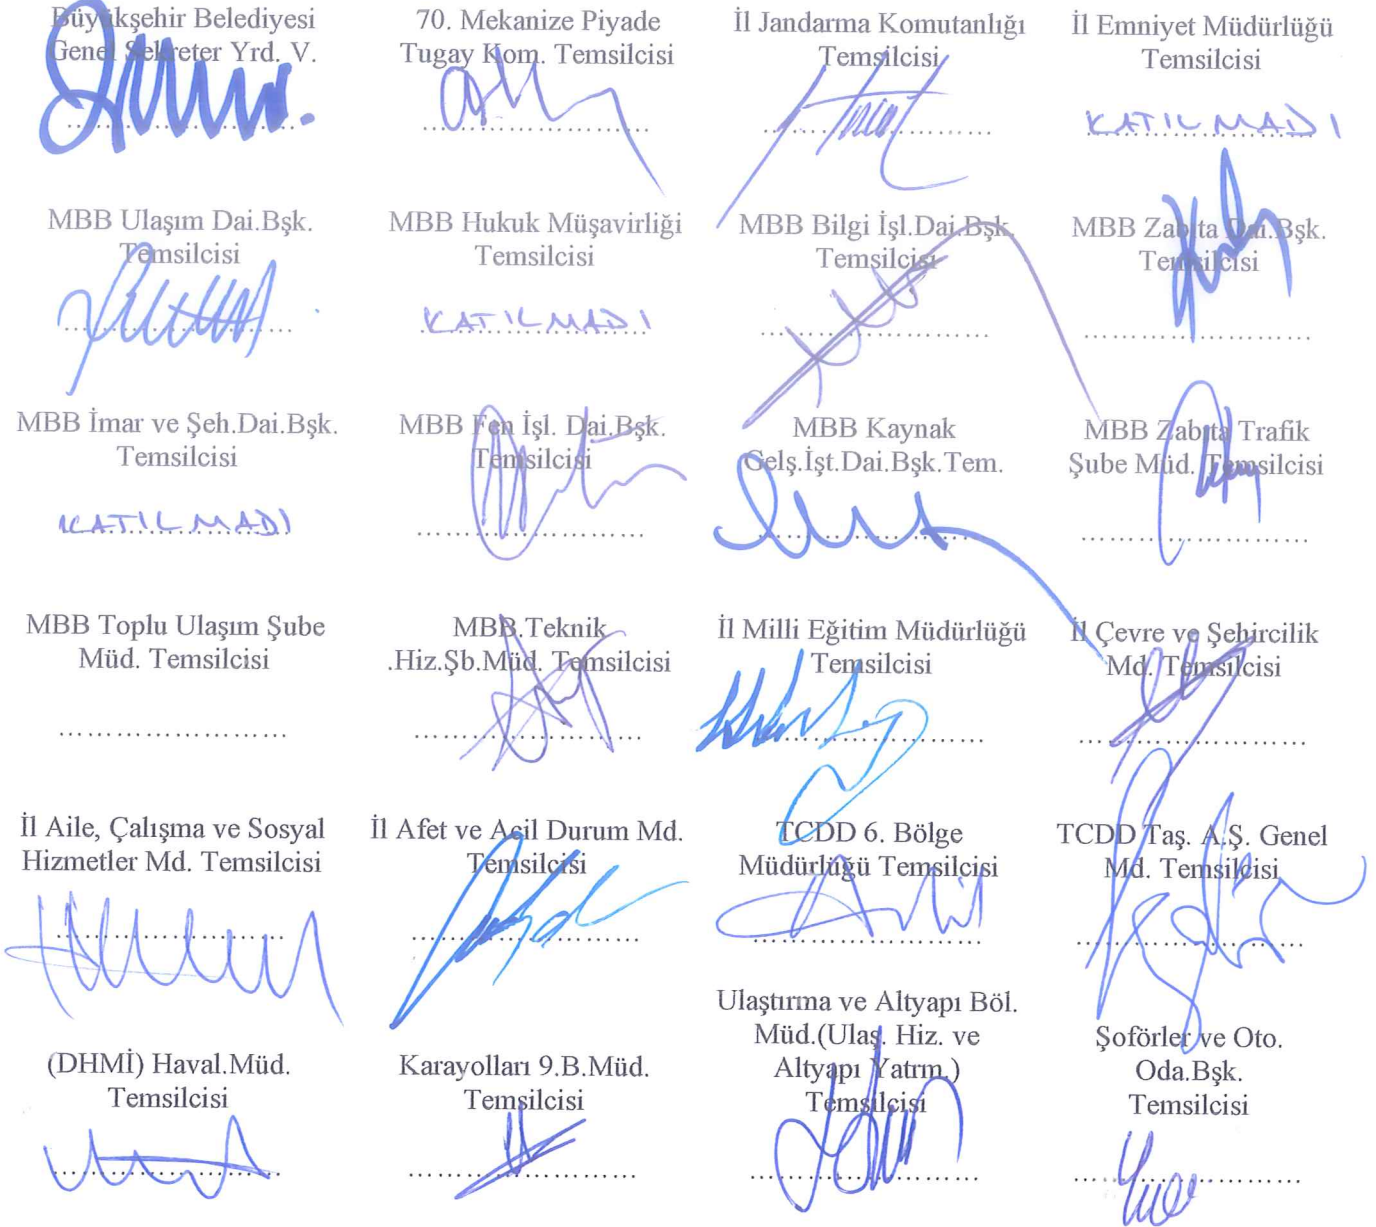 Büyükşehir Belediyesi
Genel Sekreter Yrd. V.
70. Mekanize Piyade
Tugay Kom. Temsilcisi
İl Jandarma Komutanlığı
Temsilcisi
İl Emniyet Müdürlüğü
Temsilcisi
KATILMADI
MBB Ulaşım Dai.Bşk.
Temsilcisi
MBB Hukuk Müşavirliği
Temsilcisi
KATILMADI
MBB Bilgi İşl.Dai.Bşk.
Temsilcisi
MBB Zabıta Dai.Bşk.
Temsilcisi
MBB İmar ve Şeh.Dai.Bşk.
Temsilcisi
KATILMADI
MBB Fen İşl. Dai.Bşk.
Temsilcisi
MBB Kaynak
Gelş.İşt.Dai.Bşk.Tem.
MBB Zabıta Trafik
Şube Müd. Temsilcisi
MBB Toplu Ulaşım Şube
Müd. Temsilcisi
MBB.Teknik
.Hiz.Şb.Müd. Temsilcisi
İl Milli Eğitim Müdürlüğü
Temsilcisi
İl Çevre ve Şehircilik
Md. Temsilcisi
İl Aile, Çalışma ve Sosyal
Hizmetler Md. Temsilcisi
İl Afet ve Acil Durum Md.
Temsilcisi
TCDD 6. Bölge
Müdürlüğü Temsilcisi
TCDD Taş. A.Ş. Genel
Md. Temsilcisi
(DHMİ) Haval.Müd.
Temsilcisi
Karayolları 9.B.Müd.
Temsilcisi
Ulaştırma ve Altyapı Böl.
Müd.(Ulaş. Hiz. ve
Altyapı Yatrm.)
Temsilcisi
Şoförler ve Oto.
Oda.Bşk.
Temsilcisi